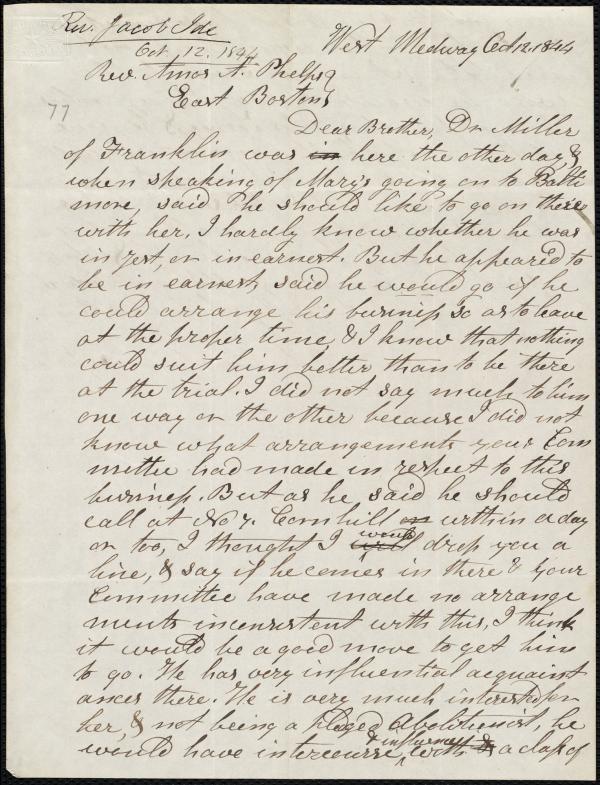 Rev. Jacob Ide
Oct. 12. 1844
West Medway Oct 12. 1844
Rev. Amos A. Phelps
East Boston
77
Dear Brother, Dr Miller
of Franklin was in here the other day, &
when speaking of Mary's going on to Balti
more, said he should like to go on there
with her, I hardly know whether he was
in jest, or in earnest. But he appeared to
be in earnest, said he would go if he
could arrange his business so as to leave
at the proper time, & I know that nothing
could suit him better than to be there
at the trial. I did not say much to him
one way or the other because I did not
know what arrangements your Com
mittee had made in respect to this
business. But as he said he should
call at No 7. Cornhill on within a day
or too, I thought I would drop you a
line, & say if he comes in there & your
Committee have made no arrange
ments inconsistent with this, I think
it would be a good move to get him
to go. He has very influential acquaint
ances there. He is very much interested in
her, & not being a pledged Abolitionist, he
would have intercourse, & influence with a class of